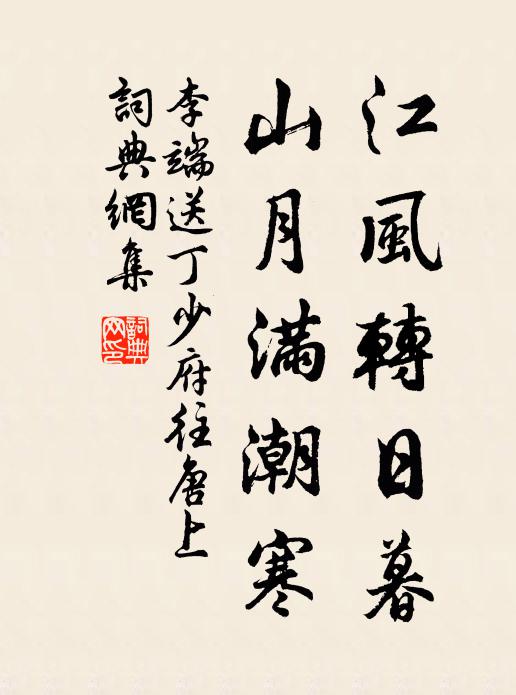 江風轉日暮
山月滿潮寒
李端送丁少府往唐上
詞典網集
詞典網印